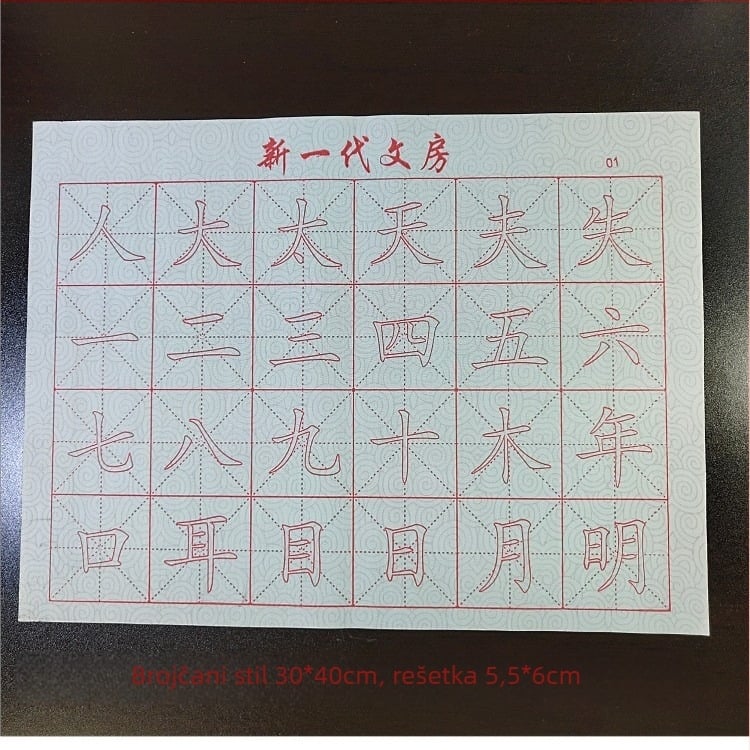 新一代文房
01
人大太天夫失
一二三四五六
七八九十木年
口耳目日月明
Brojčani stil 30*40cm, rešetka 5,5*6cm